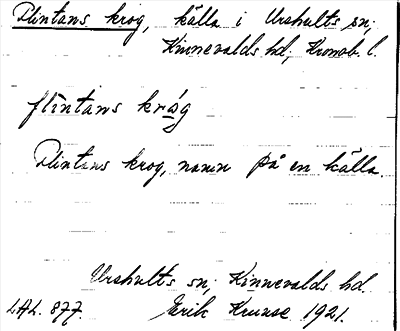 Flintans krog, källa i Urshults sn;
Kinnevalds hd; Kronob. l.
flintans kråg
Flintans krog, namn på en källa.
Urshults sn; Kinnevalds hd.
LAL. 877. Erik Kruuse 1921.